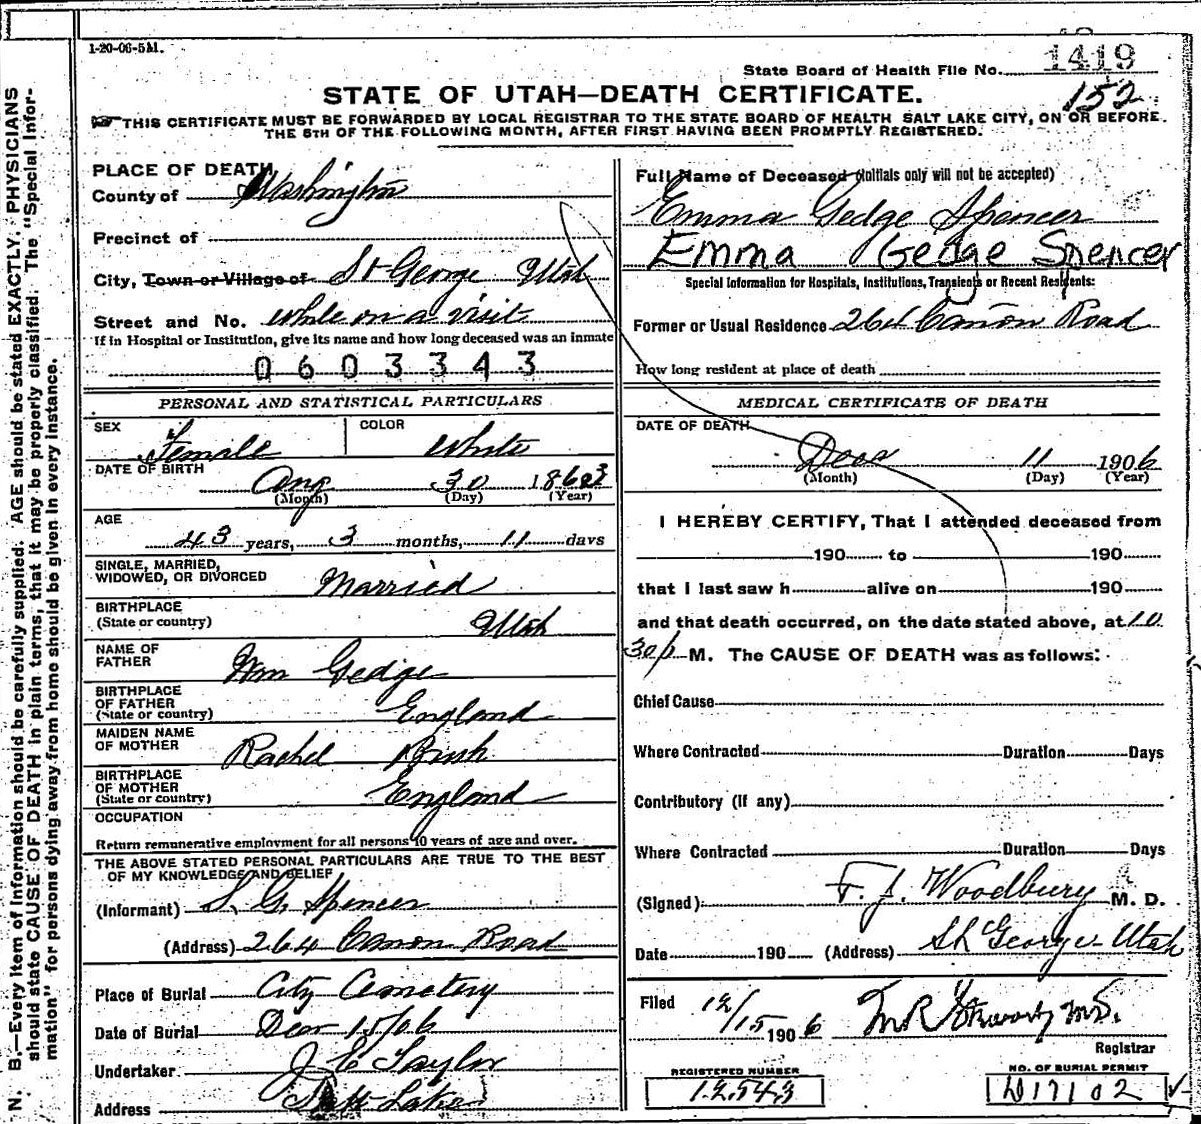 1-20-06-5M.
State Board of Health File No. 1419
152
STATE OF UTAH—DEATH CERTIFICATE.
THIS CERTIFICATE MUST BE FORWARDED BY LOCAL REGISTRAR TO THE STATE BOARD OF HEALTH SALT LAKE CITY, ON OR BEFORE.
THE 5TH OF THE FOLLOWING MONTH, AFTER FIRST HAVING BEEN PROMPTLY REGISTERED.
PLACE OF DEATH
County of Washington
Precinct of
City, Town or Village of St George Utah
Street and No. while on a visit
If in Hospital or Institution, give its name and how long deceased was an inmate
0603343
PERSONAL AND STATISTICAL PARTICULARS
SEX Female COLOR White
DATE OF BIRTH
Aug 30 1863
(Month) (Day) (Year)
AGE
43 years, 3 months, 11 days
SINGLE, MARRIED,
WIDOWED, OR DIVORCED Married
BIRTHPLACE
(State or country) Utah
NAME OF
FATHER Wm Gedge
BIRTHPLACE
OF FATHER
(State or country) England
MAIDEN NAME
OF MOTHER Rachel Bush
BIRTHPLACE
OF MOTHER
(State or country) England
OCCUPATION
Return remunerative employment for all persons 10 years of age and over.
THE ABOVE STATED PERSONAL PARTICULARS ARE TRUE TO THE BEST
OF MY KNOWLEDGE AND BELIEF
(Informant) S. G. Spencer
(Address) 264 Canon Road
Place of Burial City Cemetery
Date of Burial Dec 15/06
Undertaker J E Taylor
Address Salt Lake
Full Name of Deceased (Initials only will not be accepted)
Emma Gedge Spencer
Emma Gedge Spencer
Special Information for Hospitals, Institutions, Transients or Recent Residents:
Former or Usual Residence 264 Cañon Road
How long resident at place of death
MEDICAL CERTIFICATE OF DEATH
DATE OF DEATH
Dec 11 1906
(Month) (Day) (Year)
I HEREBY CERTIFY, That I attended deceased from
190 to 190
that I last saw h alive on 190
and that death occurred, on the date stated above, at 10
30 p M. The CAUSE OF DEATH was as follows:
Chief Cause
Where Contracted Duration Days
Contributory (if any)
Where Contracted Duration Days
(Signed) F. J. Woodbury M. D.
Date 190 (Address) St George Utah
Filed 12/15 1906
Registrar
REGISTERED NUMBER
12543
NO. OF BURIAL PERMIT
D17102
N. B.—Every item of information should be carefully supplied. AGE should be stated EXACTLY. PHYSICIANS
should state CAUSE OF DEATH in plain terms, that it may be properly classified. The "Special Infor-
mation" for persons dying away from home should be given in every instance.